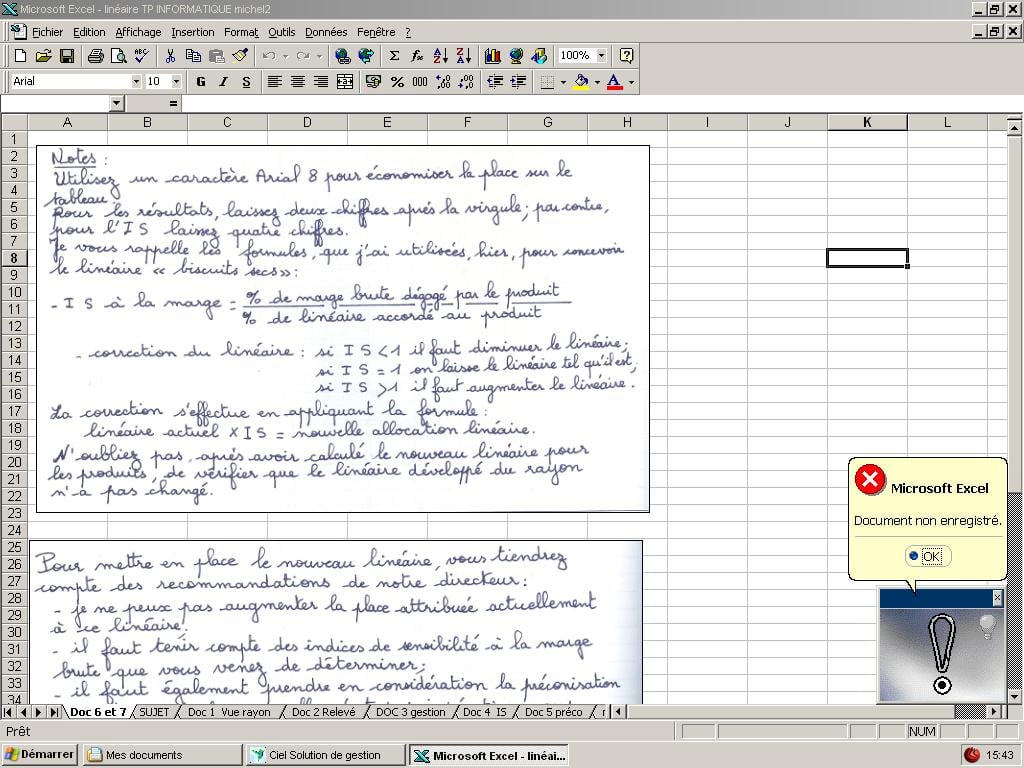 Microsoft Excel - linéaire TP INFORMATIQUE michel2
Fichier Edition Affichage Insertion Format Outils Données Fenêtre ?
100%
Arial 10 G I S % 000
=
A B C D E F G H I J K L
1
2
3
4
5
6
7
8
9
10
11
12
13
14
15
16
17
18
19
20
21
22
23
24
25
26
27
28
29
30
31
32
33
34
Notes :
Utilisez un caractère Arial 8 pour économiser la place sur le
tableau.
Pour les résultats, laissez deux chiffres après la virgule; par contre,
pour l'IS laissez quatre chiffres.
Je vous rappelle les formules, que j'ai utilisées, hier, pour concevoir
le linéaire « biscuits secs » :
- I S à la marge = % de marge brute dégagé par le produit
% de linéaire accordé au produit
- correction du linéaire : si I S < 1 il faut diminuer le linéaire;
si I S = 1 on laisse le linéaire tel qu'il est;
si I S > 1 il faut augmenter le linéaire.
La correction s'effectue en appliquant la formule :
linéaire actuel x I S = nouvelle allocation linéaire.
N'oubliez pas, après avoir calculé le nouveau linéaire pour
les produits, de vérifier que le linéaire développé du rayon
n'a pas changé.
Pour mettre en place le nouveau linéaire, vous tiendrez
compte des recommandations de notre directeur :
- je ne peux pas augmenter la place attribuée actuellement
à ce linéaire;
- il faut tenir compte des indices de sensibilité à la marge
brute que vous venez de déterminer;
- il faut également prendre en considération la préconisation
Microsoft Excel
Document non enregistré.
OK
Doc 6 et 7 SUJET Doc 1 Vue rayon Doc 2 Relevé DOC 3 gestion Doc 4 IS Doc 5 préco
Prêt NUM
Démarrer Mes documents Ciel Solution de gestion Microsoft Excel - linéai... 15:43